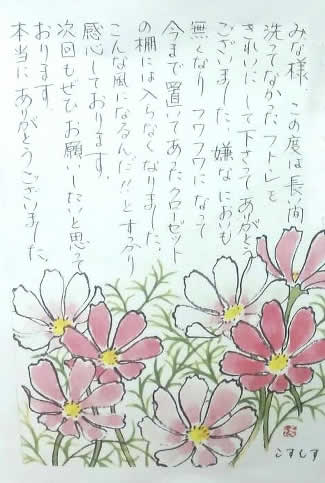 みな様、この度は長い間
洗ってなかったフトンを
きれいにして下さってありがとう
ございました。嫌なにおいも
無くなり フワフワになって
今まで置いてあったクローゼット
の棚には入らなくなりました、
こんな風になるんだ!!とすっかり
感心しております。
次回もぜひお願いしたいと思って
おります。
本当に ありがとうございました、
こすもす